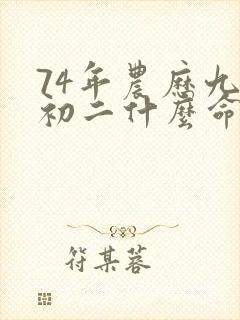 74年農歷九
初二什麼命
符某蓉